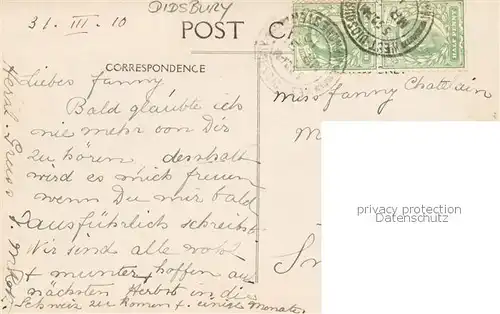 DIDSBURY
31. III. 10
POST CARD
CORRESPONDENCE
Liebes Fanny
Bald glaubte ich
nie mehr von Dir
zu hören deshalb
wird es mich freuen
wenn Du mir bald
ausführlich schreibst
Wir sind alle wohl
+ munter, hoffen auf
nächsten Herbst in die
Schweiz zu komen f. einige Monate.
Herzl. Gruss
Miss Fanny Chatelain
privacy protection
Datenschutz